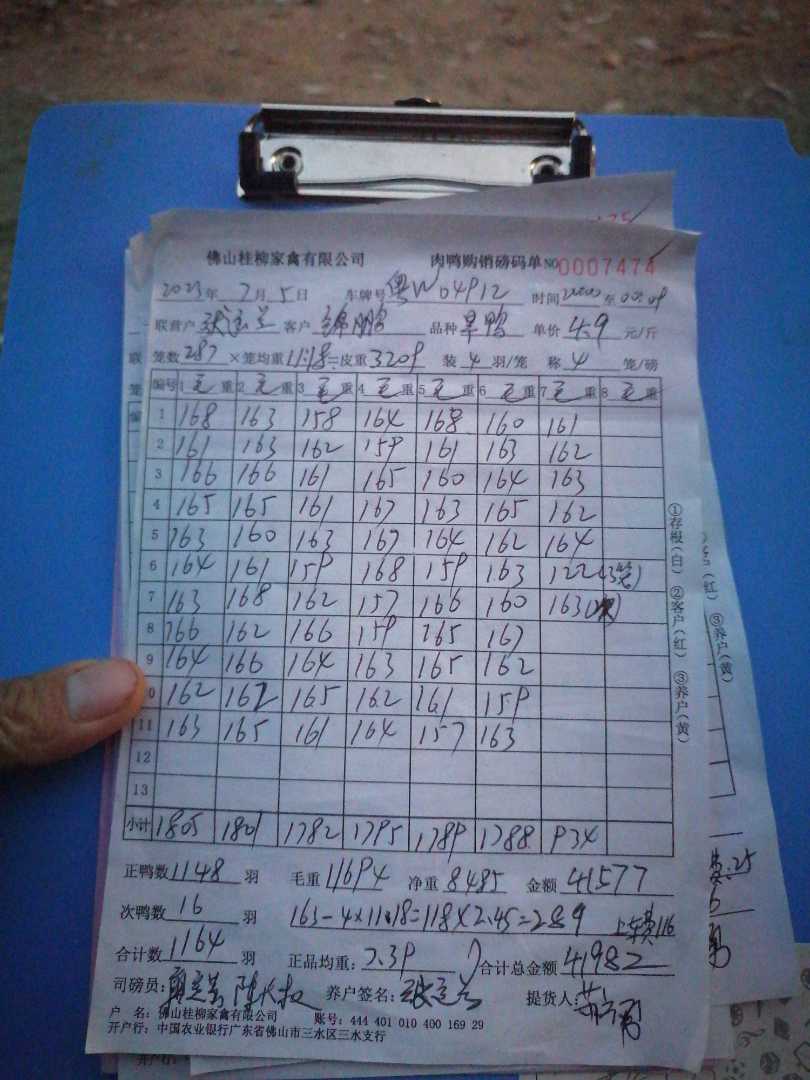 佛山桂柳家禽有限公司 肉鸭购销磅码单 NO 0007474
2023年 7月 5日 车牌号 粤W04912 时间 至
联营户 客户 锦鹏 品种 旱鸭 单价 4.9 元/斤
笼数 287 ×笼均重 11.18 =皮重 3209 装 4 羽/笼 称 4 笼/磅
编号 1 毛重 2 毛重 3 毛重 4 毛重 5 毛重 6 毛重 7 毛重 8 毛重
1 168 163 158 164 168 160 161
2 161 163 162 159 161 163 162
3 166 166 161 165 160 164 163
4 165 165 161 167 163 165 162
5 163 160 163 167 164 162 164
6 164 161 159 168 159 163 122 (3笼)
7 163 168 162 157 166 160 163
8 166 162 166 159 165 167
9 164 166 164 163 165 162
10 162 162 165 162 161 159
11 163 165 161 164 157 163
12
13
小计 1805 1801 1782 1795 1789 1788 934
正鸭数 1148 羽 毛重 11694 净重 8485 金额 41577
次鸭数 16 羽 163-4×11.18=118×2.45=289 上车费116
合计数 1164 羽 正品均重: 7.39 合计总金额 41982
司磅员: 养户签名: 提货人:
户 名: 佛山桂柳家禽有限公司 账号: 444 401 010 400 169 29
开户行: 中国农业银行广东省佛山市三水区三水支行
①存根(白) ②客户(红) ③养户(黄)
③养户(黄)